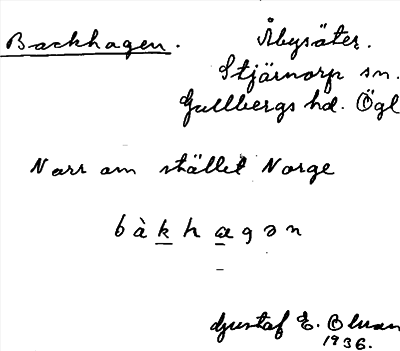 Backhagen. Åbysäter.
Stjärnorp sn.
Gullbergs hd. Ögl
Norr om stället Norge
bàkhagən
Gustaf E. Bluan
1936.